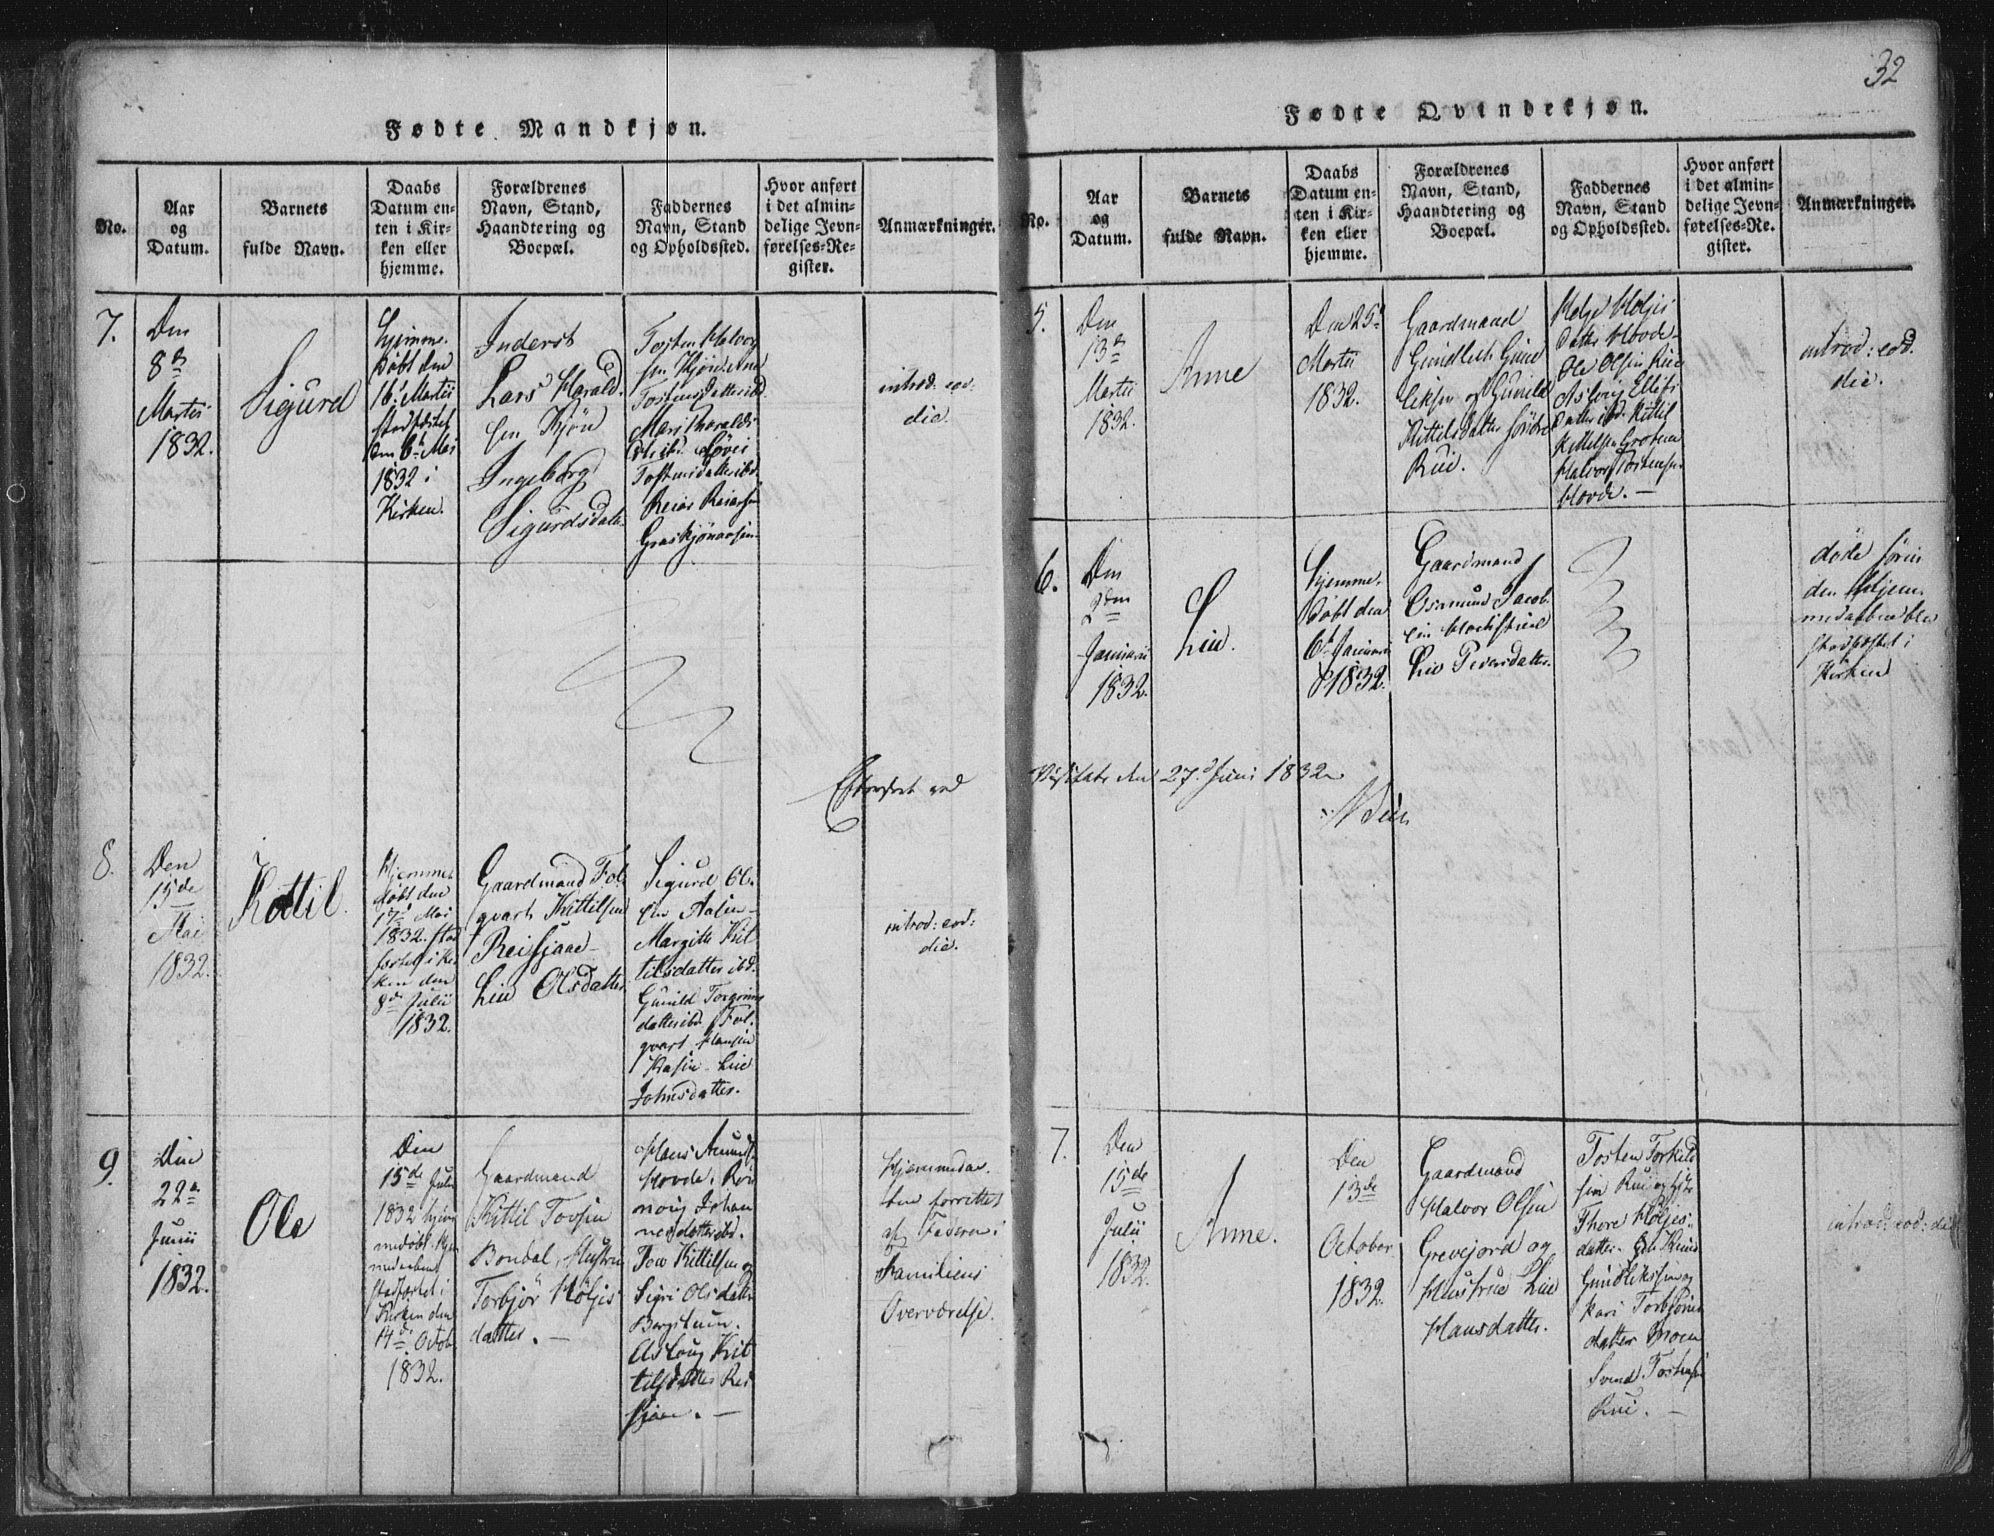 32
Fødte Mandkjøn.
No.
Aar
og
Datum.
Barnets
fulde Navn.
Daabs
Datum en-
ten i Kir-
ken eller
hjemme.
Forældrenes
Navn, Stand,
Haandtering og
Boepæl.
Faddernes
Navn, Stand
og Opholdssted.
Hvor anført
i det almin-
delige Jevn-
førelses-Re-
gister.
Anmærkninger.
7.
Den
8de
Martii
1832.
Sigurd
Hjemme-
døbt den
16de Martii
stadfæstet
den 6te Mai
1832 i
Kirken.
Inderst
Lars Harald-
sen Kjøn
Ingeborg
Sigurdsdatter
Tosten Halvor-
sen
Tostensdatter ibd.
Tostensdatter ibd.
introd: eod.
die.
8.
Den
15de
Mai
1832.
Kettil.
Hjemme
døbt den
17de Mai
1832. stad
fæstet i Kir
ken den
8de Julii
1832.
Gaardmand Fol-
qvart Kittilsen
Reisjaae
Liv Olsdatter
Sigurd Ol-
sen Aasen
Margith Kit
tilsdatter ibd.
Gunild Torgrims
datter ibd. Fol-
qvart Hansen
Johnsdatter.
introd: eod:
die.
9.
Den
22de
Junii
1832.
Ole
Den
15de Julii
1832 hjem
medøbt. Hjem
medaaben
stadfæstet i
Kirken den
14de Octob
1832.
Gaardmand
Kittil Tovsen
Bondal, Hustru
Torbjør Høljes
datter. —
Hans Amunds.
Hovde, Røn
noug Johan
nesdatter ibd.
Tov Kittilsen og
Sigri Olsdatter
Asloug Kit
tilsdatter Rei
sjaae. —
Hjemmedaa-
ben forrettet
af Faderen i
Familiens
Overværelse.
Efterseet ved
Fødte Qvindekjøn.
No.
Aar
og
Datum.
Barnets
fulde Navn.
Daabs
Datum en-
ten i Kir-
ken eller
hjemme.
Forældrenes
Navn, Stand,
Haandtering og
Boepæl.
Faddernes
Navn, Stand
og Opholdssted.
Hvor anført
i det almin-
delige Jevn-
førelses-Re-
gister.
Anmærkninger.
5.
Den
13de
Martii
1832.
Anne
Den 25de
Martii
1832.
Gaardmand
Gundleik Gund
leiksen og Gunild
Kittilsdatter Søndre
Rui.
Helje Høljes
datter Hovde-
Ole Olsen Rue
Asloug Ellefs
datter ibd. Kittil
Kittilsen
Halvor Tostensen
Hovde. —
introd: eod.
die.
6.
Den
2den
Januarii
1832.
Liv.
Hjemme-
døbt den
6te Januarii
1832.
Gaardmand
Osmund Jacob-
sen
Liv Pedersdatter.
døde førin
den Hjem
medaaben blev
stadfæstet i
Kirken
Visitats den 27de Juni 1832
7.
Den
15de
Julii
1832.
Anne.
Den
13de
October
1832.
Gaardmand
Halvor Olsen
Grevejord og
Hustrue Liv
Hansdatter.
Tosten Torkild
sen Rui
Thore Høljes-
datter
Gundleiksen og
Kari Torbjørns
datter Moen
Svend Tostensen
Rui. —
introd: eod: die